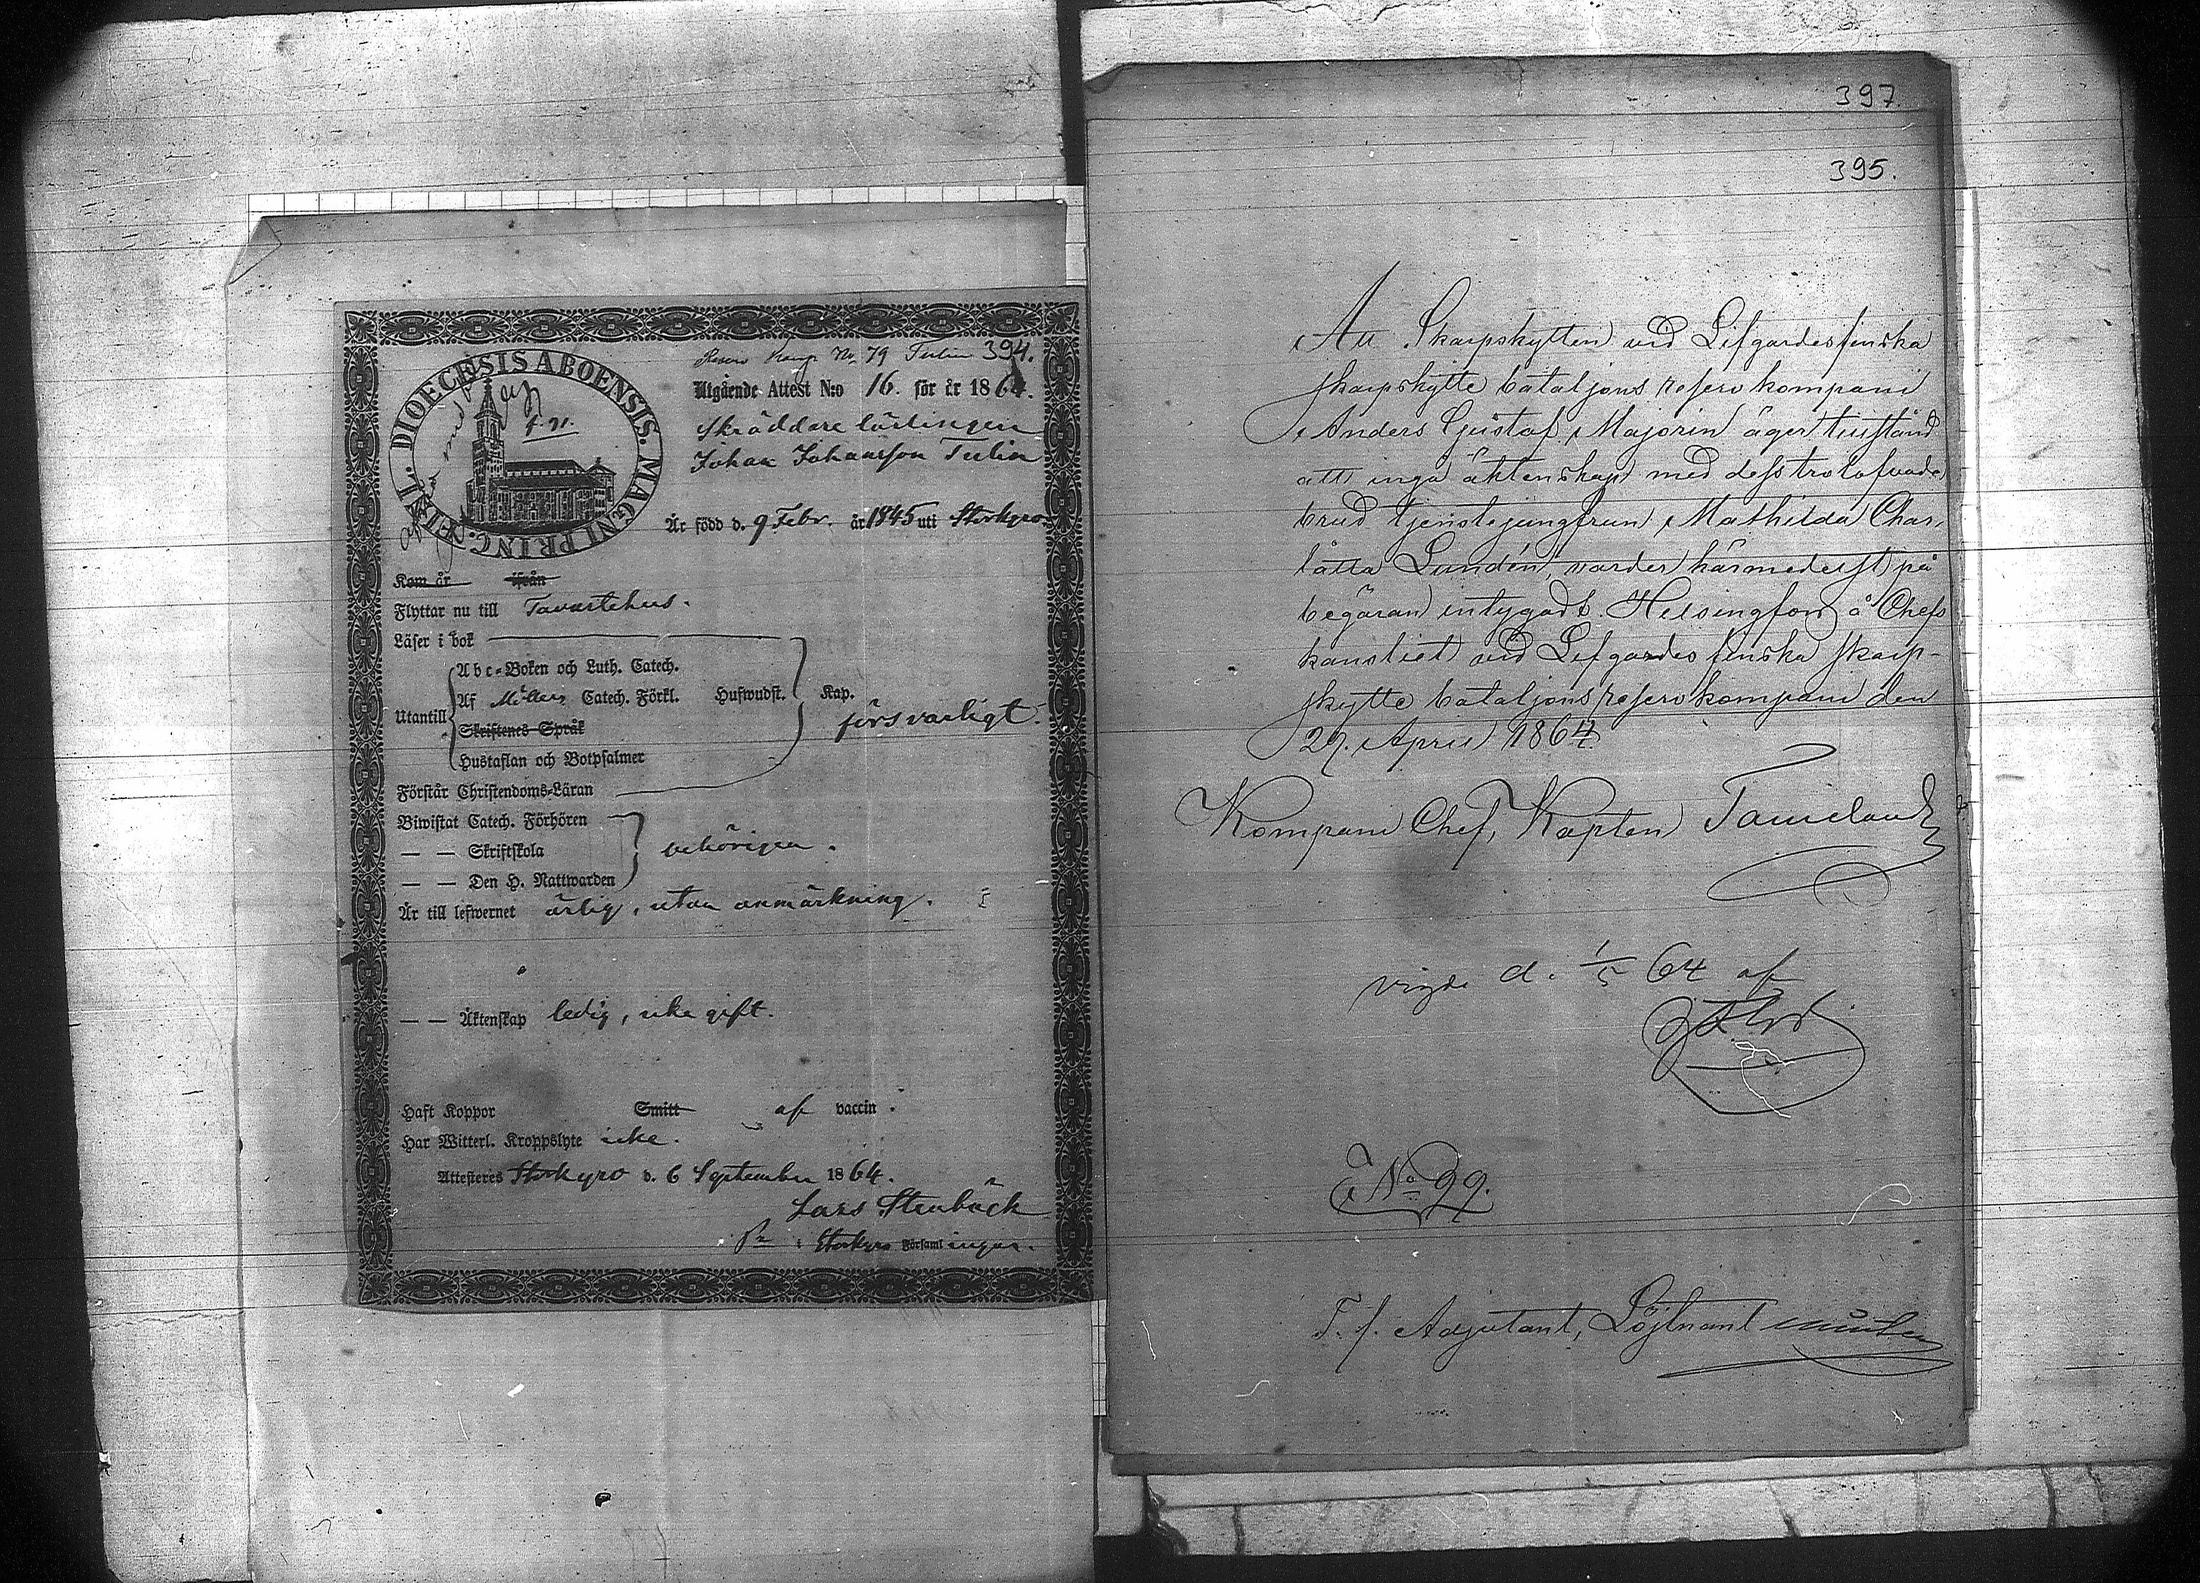 394.
Reserv Komp No 79 Tulin
DIOECESIS ABOENSIS. MAGNI PRINC. FINL.
Utgående Attest N:o 16. för år 1864.
Skräddare lärlingen
Johan Johansson Tulin
Är född d. 9 Febr. år 1845 uti Storkyro
Kom år ifrån
Flyttar nu till Tavastehus.
Läser i bok
Utantill
Abc-Boken och Luth. Catech.
Af Möllers Catech. Förkl. Hufwudst. Kap.
Skriftenes Språk
försvarligt.
Hustaflan och Botpsalmer
Förstår Christendoms-Läran
Biwistat Catech. Förhören
— — Skriftskola behörigen.
— — Den H. Nattwarden
Är till lefwernet ärlig, utan anmärkning.
— — Äktenskap ledig, icke gift.
Haft Koppor Smitt af vaccin.
Har Witterl. Kroppslyte icke.
Attesteres Storkyro d. 6 September 1864.
Lars Stenbäck
i Storkyro Församlingen.
397.
395.
Att Skarpskytten vid Lifgardes finska
skarpskytte bataljons reserv kompani
Anders Gustaf Majorin äger tillstånd
att ingå äktenskap med dess trolofvade
brud tjenstejungfrun Mathilda Char-
lotta Lundén, varder härmedelst på
begäran intygadt. Helsingfors å Chefs
kansliet vid Lifgardes finska skarp-
skytte bataljons reserv kompani den
29. April 1864.
Kompani Chef, Kapten
vigde d. 1/5 64 af
No 99.
T. f. Adjutant, Löjtnant